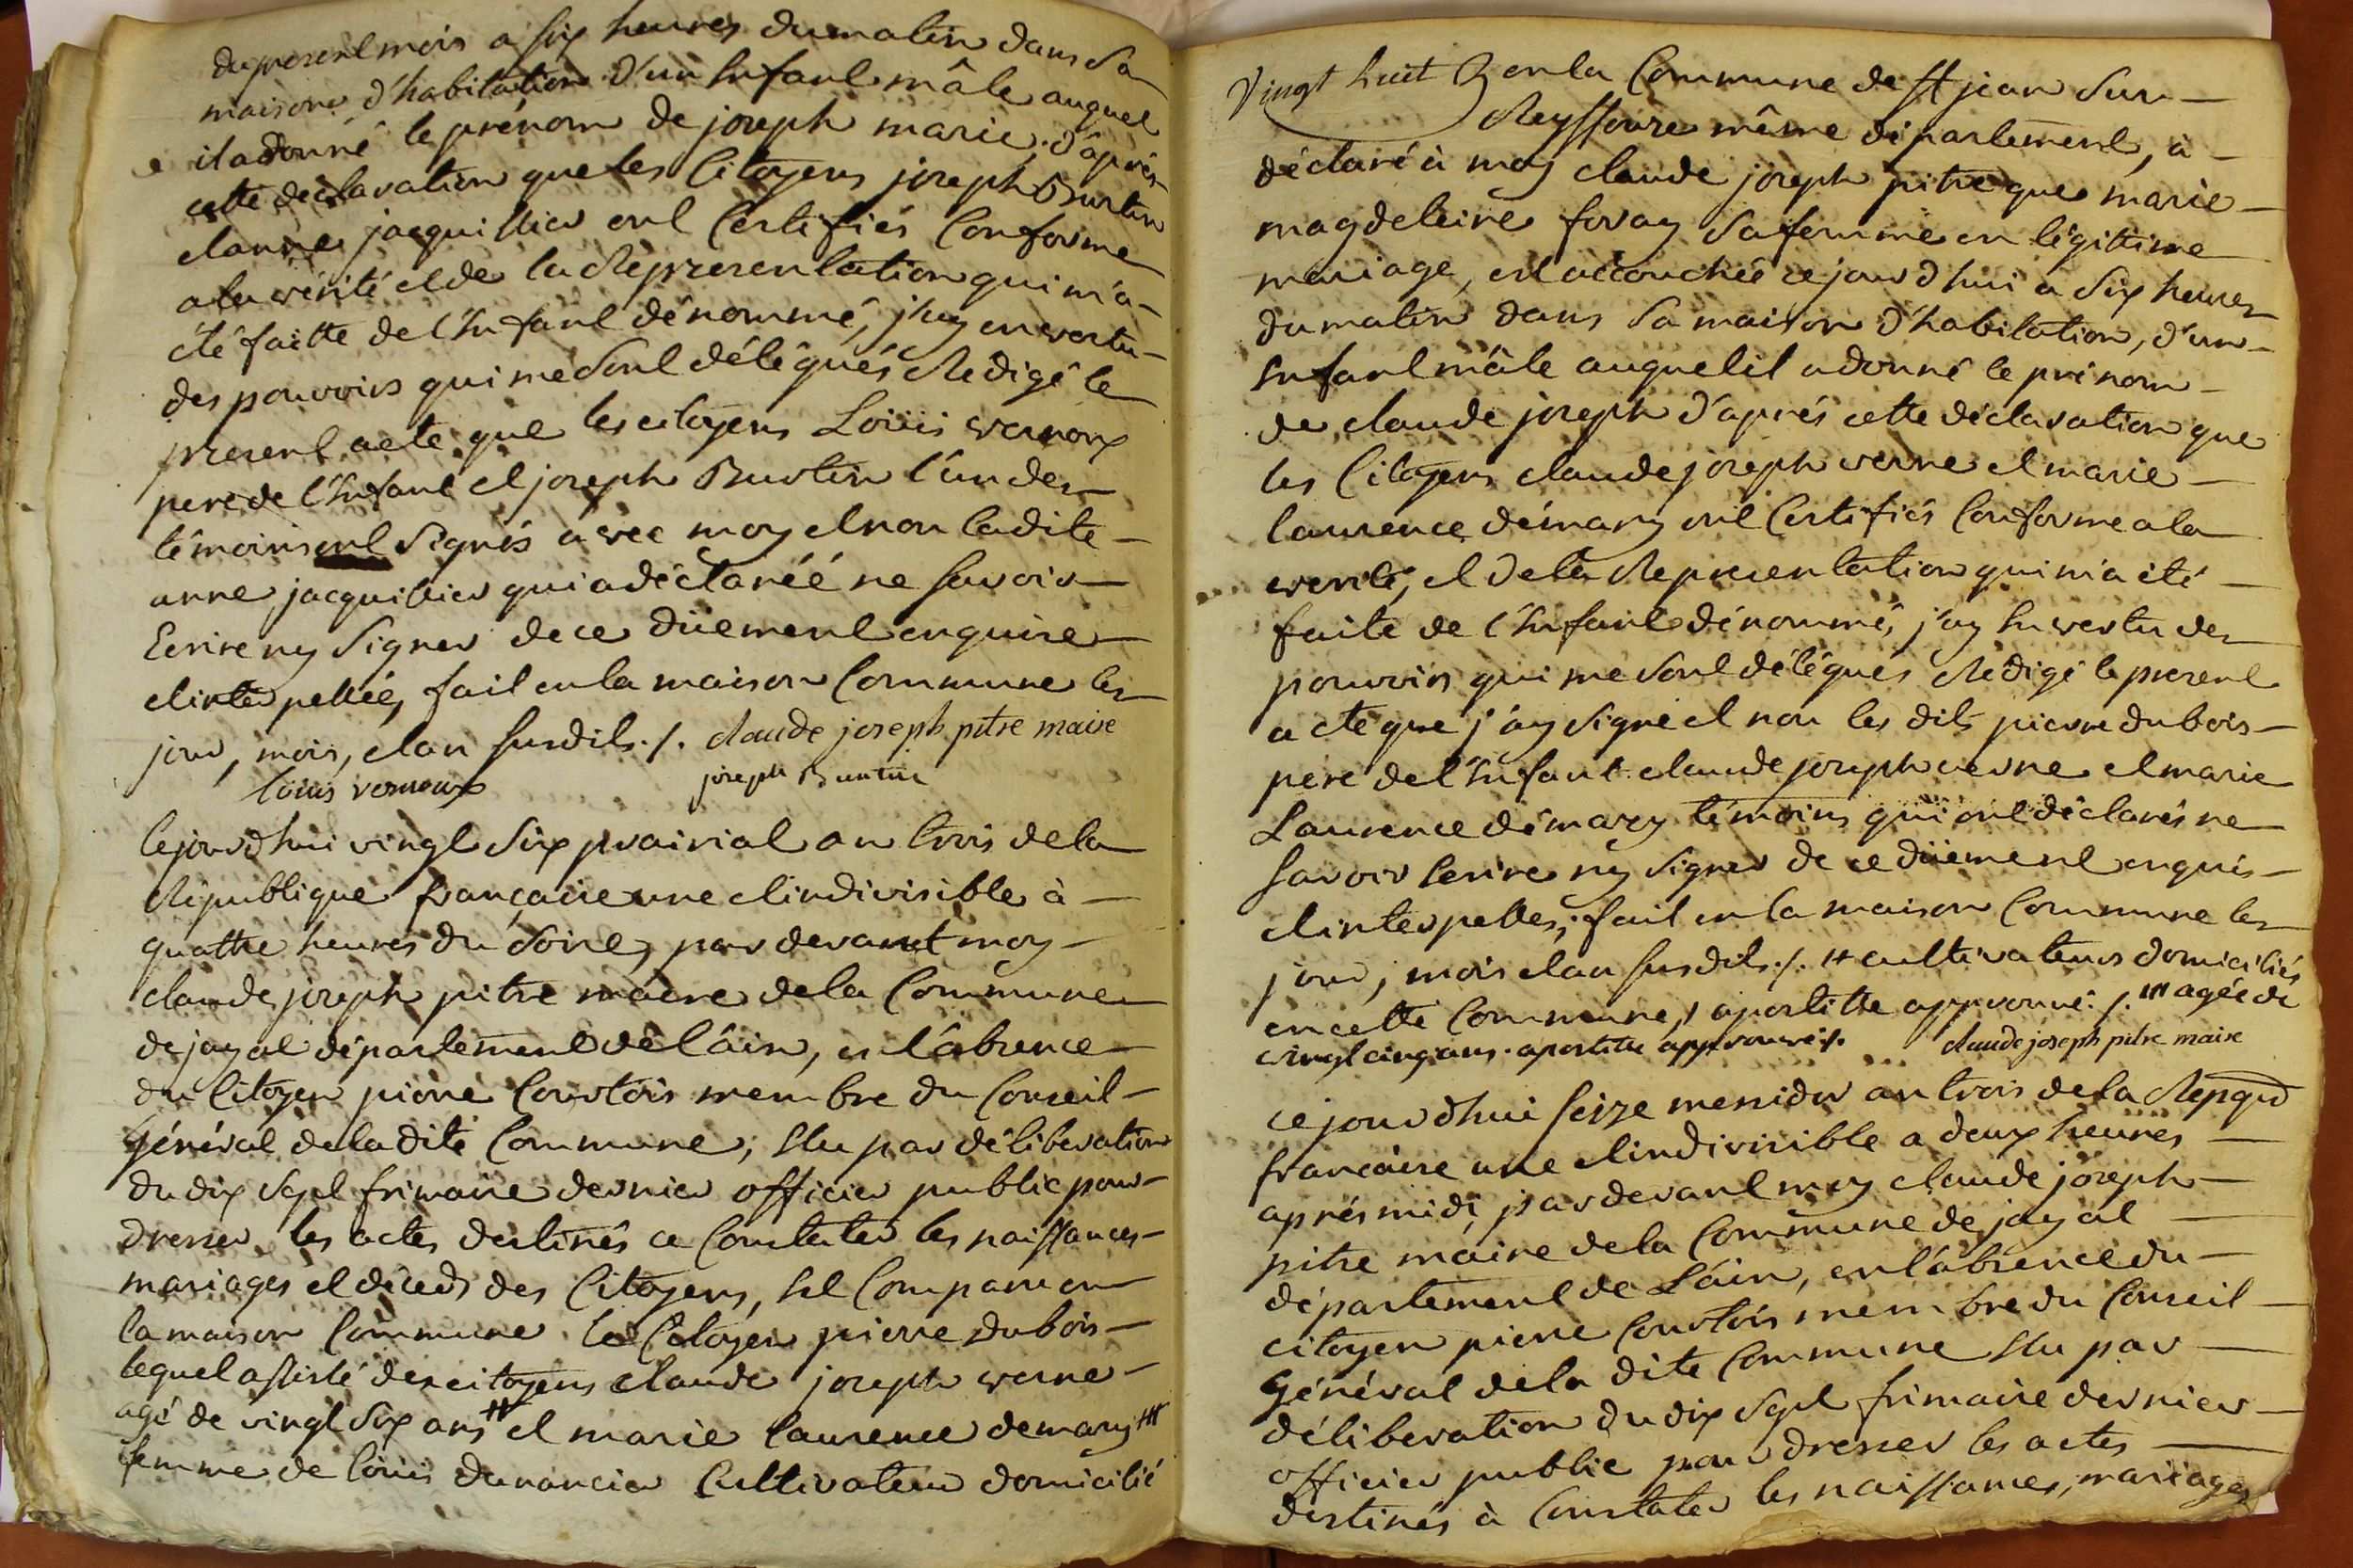 du present mois a six heures du matin dans sa
maison d'habitation d'un Enfant mâle auquel
il a donné le prénom de joseph marie, d'aprés
cette déclaration que les Citoyens joseph Burtin
et anne jacquillier ont Certifiés Conforme
a la vérité et de la Représentation qui m'a
été faitte de l'Enfant dénommé, j'ay en vertu
des pouvoirs qui me sont délégués Redigé le
present acte que les citoyens Loüis vernoux
pere de l'Enfant et joseph Burtin l'un des
témoins ont signés avec moy et non ladite
anne jacquillier qui a déclaréé ne savoir
Ecrire ny signer de ce düement enquise
et interpellée, fait en la maison Commune les
jour, mois, et an susdits ./. claude joseph pitre maire
loüis vernoux joseph Burtin
Cejourd'hui vingt six prairial an trois de la
République française une et indivisible à
quattre heures du soire, par devant moy
claude joseph pitre maire de la Commune
de jayat département de l'âin, en l'absence
du Citoyen pierre Courtois membre du Conseil
Général de la dite Commune, Elu par déliberation
du dix sept frimaire dernier officier public pour
dresser les actes destinés a Constater les naissances
mariages et déceds des Citoyens, Est Comparu en
la maison Commune le Citoyen pierre dubois
lequel assisté des citoyens claude joseph verne
agé de vingt six ans # et marie laurence demary ##
femme de loüis durancier Cultivateur domicilié
Vingt huit } en la Commune de St jean sur
Reyssouze même département, a
déclaré à moy claude joseph pitre que marie
magdeleine foray sa femme en légittime
mariage, est accouchée cejourd'hui a six heures
du matin dans sa maison d'habitation, d'un
Enfant mâle auquel il a donné le prénom
de claude joseph d'aprés cette déclaration que
les Citoyens claude joseph verne et marie
laurence démary ont Certifiés Conforme a la
verité, et de la Représentation qui m'a été
faite de l'Enfant dénommé, j'ay En vertu des
pouvoirs qui me sont délégués Redigé le present
acte que j'ay signé et non les dits pierre dubois
pere de l'Enfant claude joseph verne et marie
Laurence démary témoins qui ont déclarés ne
savoir Ecrire ny signer de ce düement enquis
et interpelles, fait en la maison Commune les
jour, mois et an susdits ./. # cultivateurs domiciliés
en cette Commune, apostille approuvé ./. ## agée de
vingt cinq ans. apostille approuvé ./. claude joseph pitre maire
cejourd'hui seize messidor an trois de la Repque
française une et indivisible a deux heures
aprés midi, par devant moy claude joseph
pitre maire de la Commune de jayat
département de L'âin, en l'absence du
citoyen pierre Courtois membre du Conseil
Général de la dite Commune Elu par
déliberation du dix sept frimaire dernier
officier public pour dresser les actes
destinés à Constater les naissances, mariages